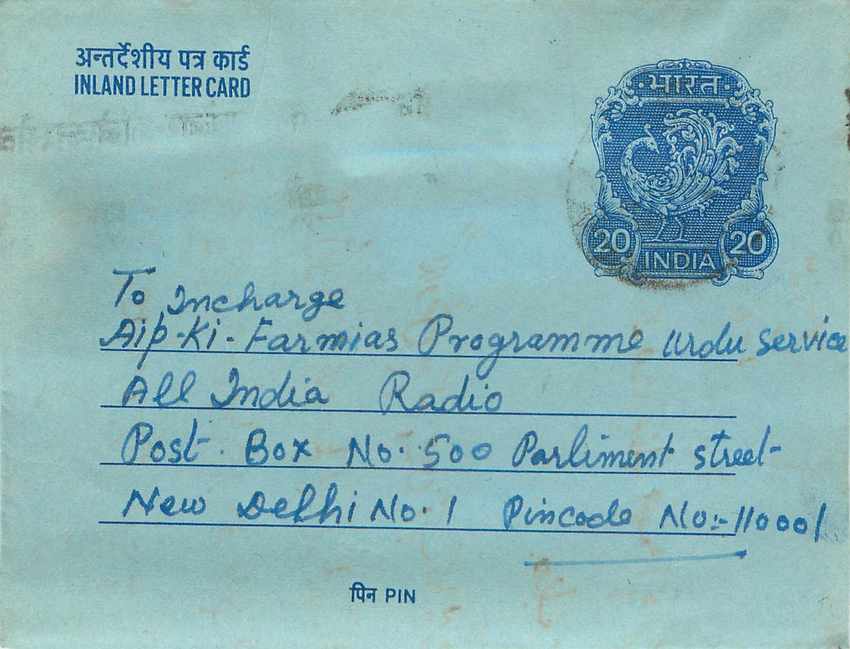 अन्तर्देशीय पत्र कार्ड
INLAND LETTER CARD
भारत
20 20
INDIA
To Incharge
Aip-Ki-Farmias Programme Urdu Service
All India Radio
Post Box No. 500 Parliment street
New Delhi No. 1 Pincode No:-110001
पिन PIN